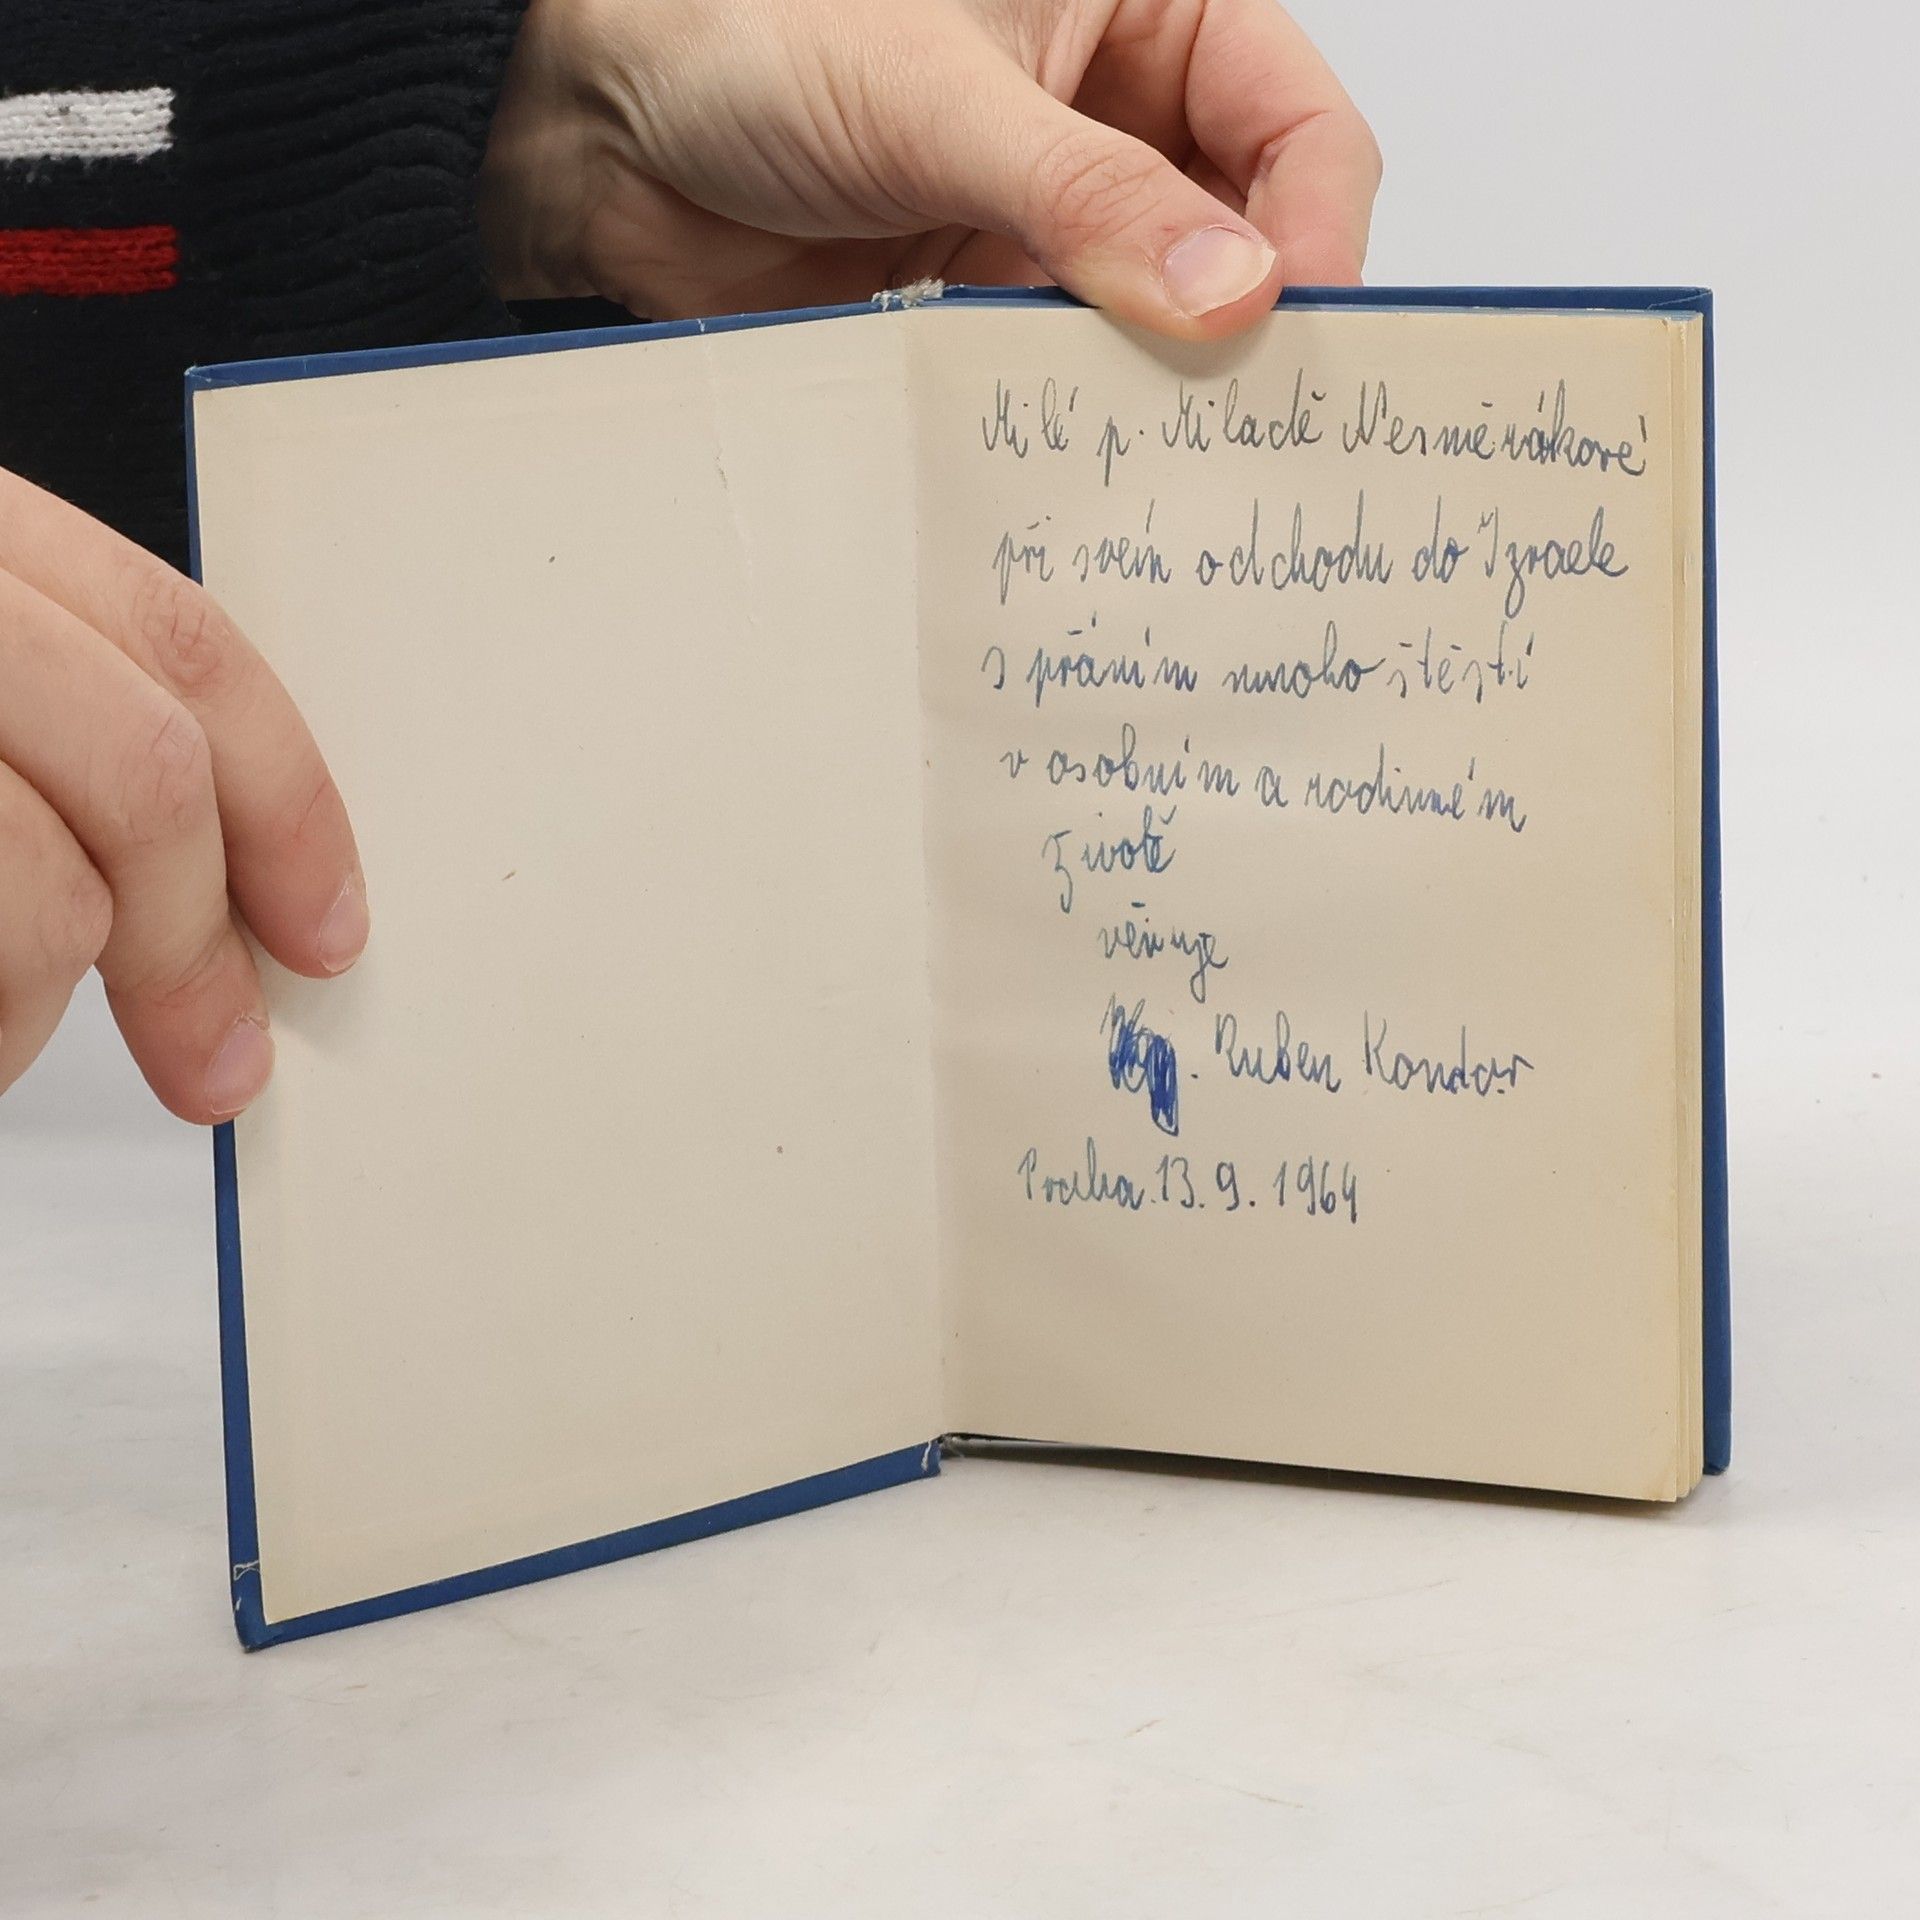 Milé p. Miladě Nesměrákové
při svém odchodu do Izraele
s přáním mnoho štěstí
v osobním a rodinném
životě
věnuje
. Ruben Kondor
Praha 13. 9. 1964